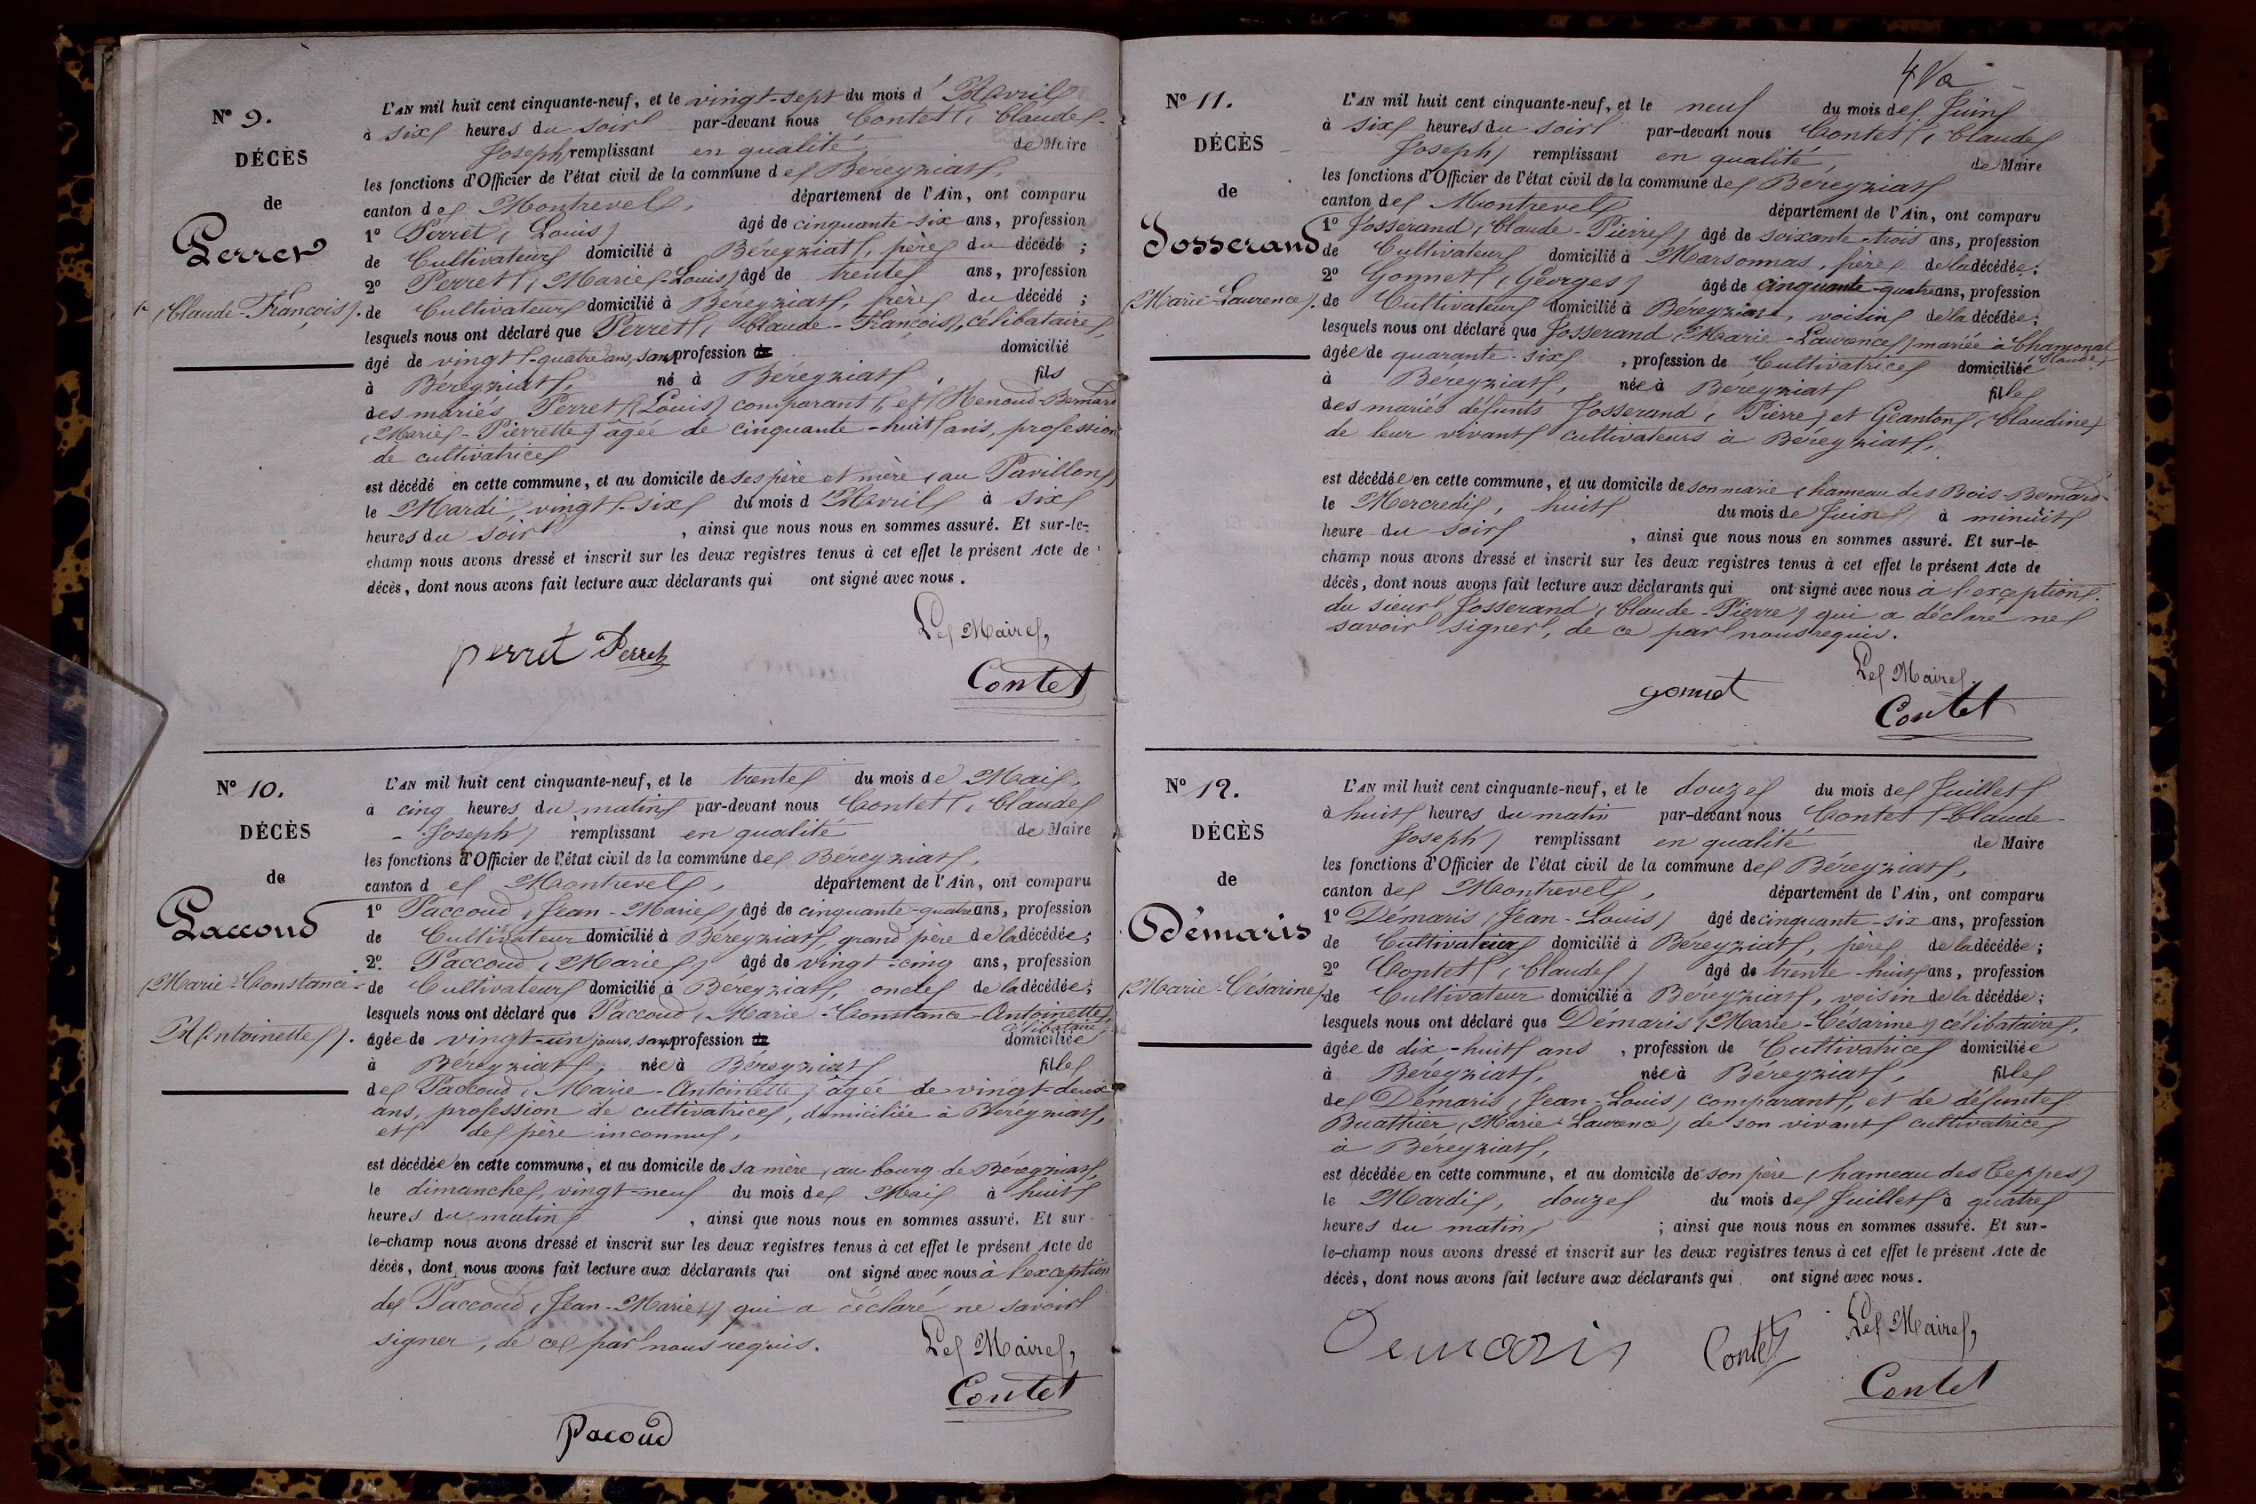 N° 9.
DÉCÈS
de
Perret
(Claude-François).
L'AN mil huit cent cinquante-neuf, et le vingt-sept du mois d'Avril
à six heures du soir par-devant nous Contet (Claude-
Joseph) remplissant en qualité de Maire
les fonctions d'Officier de l'état civil de la commune de Béréyziat,
canton de Montrevel, département de l'Ain, ont comparu
1° Perret (Louis) âgé de cinquante-six ans, profession
de Cultivateur domicilié à Béréyziat, père du décédé ;
2° Perret (Marie-Louis) âgé de trente ans, profession
de Cultivateur domicilié à Béréyziat, frère du décédé ;
lesquels nous ont déclaré que Perret (Claude-François), célibataire,
âgé de vingt-quatre ans, sans profession de domicilié
à Béréyziat, né à Béréyziat, fils
des mariés Perret (Louis) comparant, et Renoud-Bernard
(Marie-Pierrette) âgée de cinquante-huit ans, profession
de cultivatrice
est décédé en cette commune, et au domicile de ses père et mère (au Pavillon)
le Mardi, vingt-six du mois d'Avril à six
heures du soir, ainsi que nous nous en sommes assuré. Et sur-le-
champ nous avons dressé et inscrit sur les deux registres tenus à cet effet le présent Acte de
décès, dont nous avons fait lecture aux déclarants qui ont signé avec nous.
Le Maire,
perret Perret
Contet
N° 10.
DÉCÈS
de
Paccoud
(Marie-Constance-
Antoinette).
L'AN mil huit cent cinquante-neuf, et le trente du mois de Mai,
à cinq heures du matin par-devant nous Contet (Claude
-Joseph) remplissant en qualité de Maire
les fonctions d'Officier de l'état civil de la commune de Béréyziat,
canton de Montrevel, département de l'Ain, ont comparu
1° Paccoud (Jean-Marie) âgé de cinquante-quatre ans, profession
de Cultivateur domicilié à Béréyziat, grand père de la décédée ;
2° Paccoud (Marie) âgé de vingt-cinq ans, profession
de Cultivateur domicilié à Béréyziat, oncle de la décédée ;
lesquels nous ont déclaré que Paccoud (Marie-Constance-Antoinette)
célibataire,
âgée de vingt-un jours, sans profession de domiciliée
à Béréyziat, née à Béréyziat fille
de Paccoud (Marie-Antoinette) âgée de vingt-deux
ans, profession de cultivatrice, domiciliée à Béréyziat,
et de père inconnu,
est décédée en cette commune, et au domicile de sa mère, au bourg de Béréyziat,
le dimanche, vingt-neuf du mois de Mai à huit
heures du matin, ainsi que nous nous en sommes assuré. Et sur-
le-champ nous avons dressé et inscrit sur les deux registres tenus à cet effet le présent Acte de
décès, dont nous avons fait lecture aux déclarants qui ont signé avec nous à l'exception
de Paccoud (Jean-Marie) qui a déclaré ne savoir
signer, de ce par nous requis.
Le Maire,
Contet
Pacoud
N° 11.
DÉCÈS
de
Josserand
(Marie-Laurence).
L'AN mil huit cent cinquante-neuf, et le neuf du mois de Juin
à six heures du soir par-devant nous Contet (Claude
Joseph) remplissant en qualité de Maire
les fonctions d'Officier de l'état civil de la commune de Béréyziat
canton de Montrevel département de l'Ain, ont comparu
1° Josserand (Claude-Pierre) âgé de soixante-trois ans, profession
de Cultivateur domicilié à Marsonnas, frère de la décédée ;
2° Gonnet (Georges) âgé de cinquante-quatre ans, profession
de Cultivateur domicilié à Béréyziat, voisin de la décédée ;
lesquels nous ont déclaré que Josserand (Marie-Laurence) mariée à Changonat
(Claude)
âgée de quarante-six, profession de Cultivatrice domiciliée
à Béréyziat, née à Béréyziat fille
des mariés défunts Josserand (Pierre) et Géanton (Claudine)
de leur vivant cultivateurs à Béréyziat,
est décédée en cette commune, et au domicile de son marie (hameau des Bois-Bernard
le Mercredi, huit du mois de Juin à minuit
heure du soir, ainsi que nous nous en sommes assuré. Et sur-le-
champ nous avons dressé et inscrit sur les deux registres tenus à cet effet le présent Acte de
décès, dont nous avons fait lecture aux déclarants qui ont signé avec nous à l'exception
du sieur Josserand (Claude-Pierre) qui a déclaré ne
savoir signer, de ce par nous requis.
Le Maire,
gonnet
Contet
N° 12.
DÉCÈS
de
Démaris
(Marie-Césarine)
L'AN mil huit cent cinquante-neuf, et le douze du mois de Juillet
à huit heures du matin par-devant nous Contet (Claude-
Joseph) remplissant en qualité de Maire
les fonctions d'Officier de l'état civil de la commune de Béréyziat,
canton de Montrevel, département de l'Ain, ont comparu
1° Démaris (Jean-Louis) âgé de cinquante-six ans, profession
de Cultivateur domicilié à Béréyziat, père de la décédée ;
2° Contet (Claude) âgé de trente-huit ans, profession
de Cultivateur domicilié à Béréyziat, voisin de la décédée ;
lesquels nous ont déclaré que Démaris (Marie-Césarine) célibataire,
âgée de dix-huit ans, profession de Cultivatrice domiciliée
à Béréyziat, née à Béréyziat, fille
de Démaris (Jean-Louis) comparant, et de défunte
Buathier (Marie-Laurence) de son vivant cultivatrice
à Béréyziat,
est décédée en cette commune, et au domicile de son père (hameau des Teppes)
le Mardi, douze du mois de Juillet à quatre
heures du matin ; ainsi que nous nous en sommes assuré. Et sur-
le-champ nous avons dressé et inscrit sur les deux registres tenus à cet effet le présent Acte de
décès, dont nous avons fait lecture aux déclarants qui ont signé avec nous.
Le Maire,
Demaris Contet
Contet